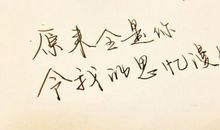 原来全是你
令我的思忆漫